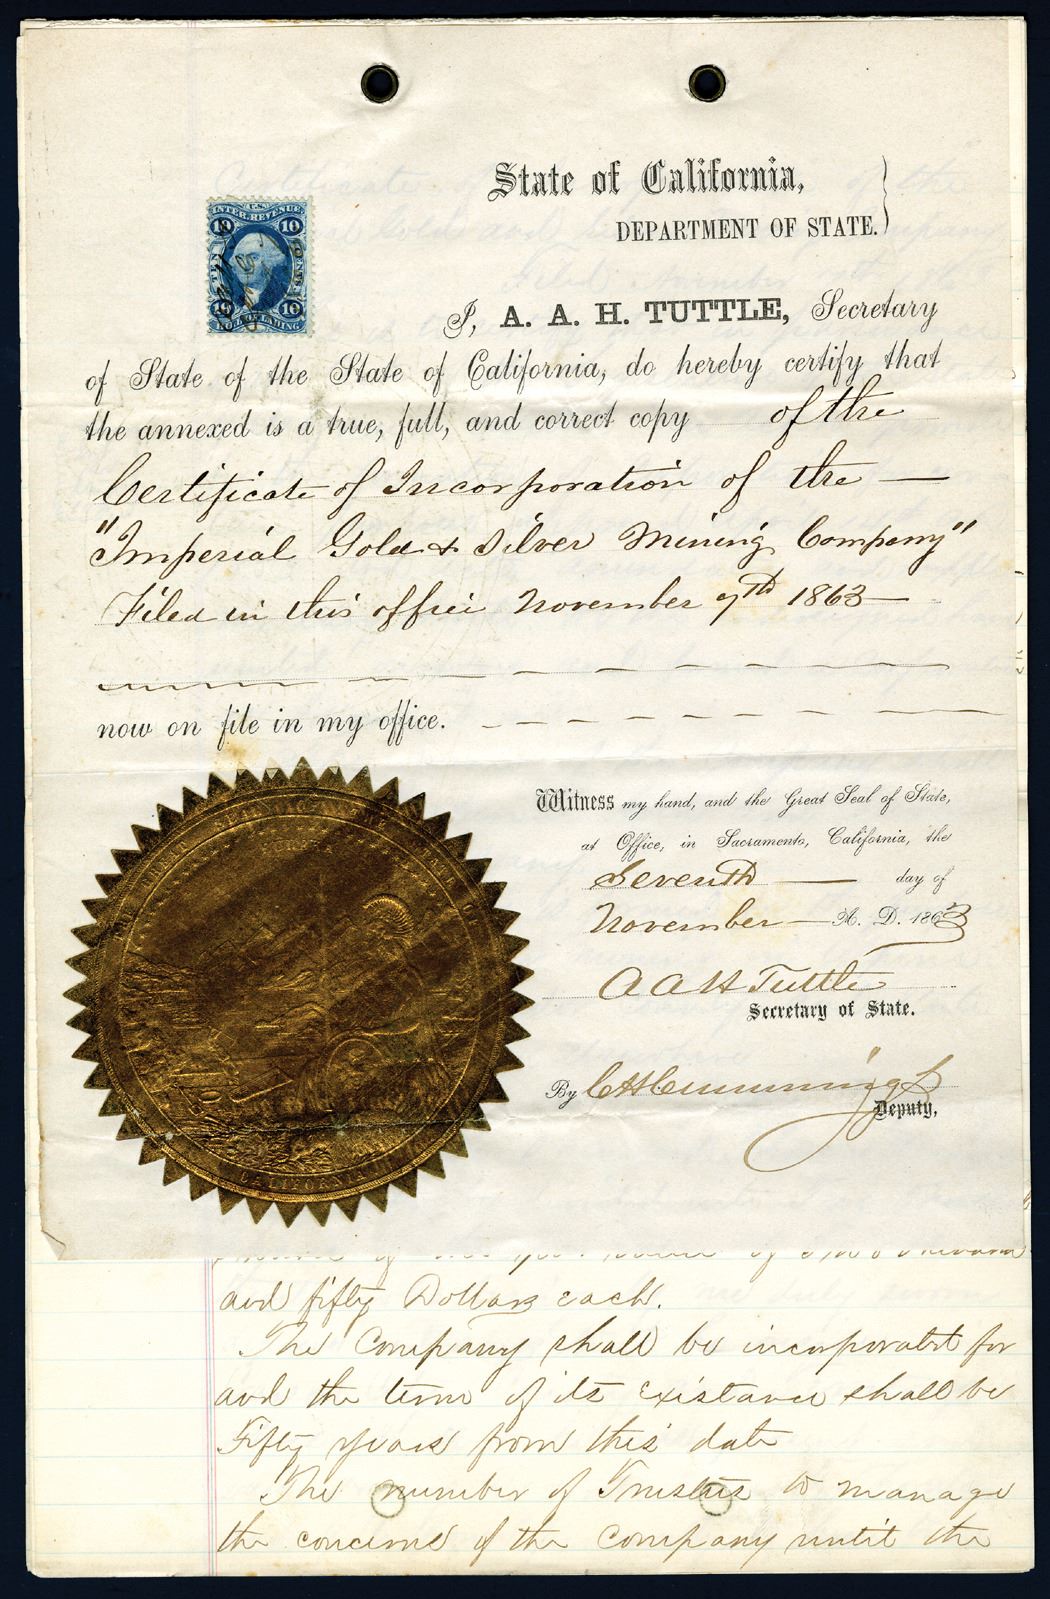 State of California,
DEPARTMENT OF STATE.
U.S.
INTER. REVENUE
10 10
TEN CENTS
10 10
BILL OF LADING
I, A. A. H. TUTTLE, Secretary
of State of the State of California, do hereby certify that
the annexed is a true, full, and correct copy of the
Certificate of Incorporation of the —
"Imperial Gold & Silver Mining Company"
Filed in this office November 7th 1863 —
now on file in my office.
Witness my hand, and the Great Seal of State,
at Office, in Sacramento, California, the
Seventh — day of
November — A. D. 1863
A A H Tuttle
Secretary of State.
By C H Cummings
Deputy,
CALIFORNIA
and fifty Dollars each.
The Company shall be incorporated for
and the term of its existance shall be
Fifty years from this date
The number of Trustees to manage
the concerns of the Company until the